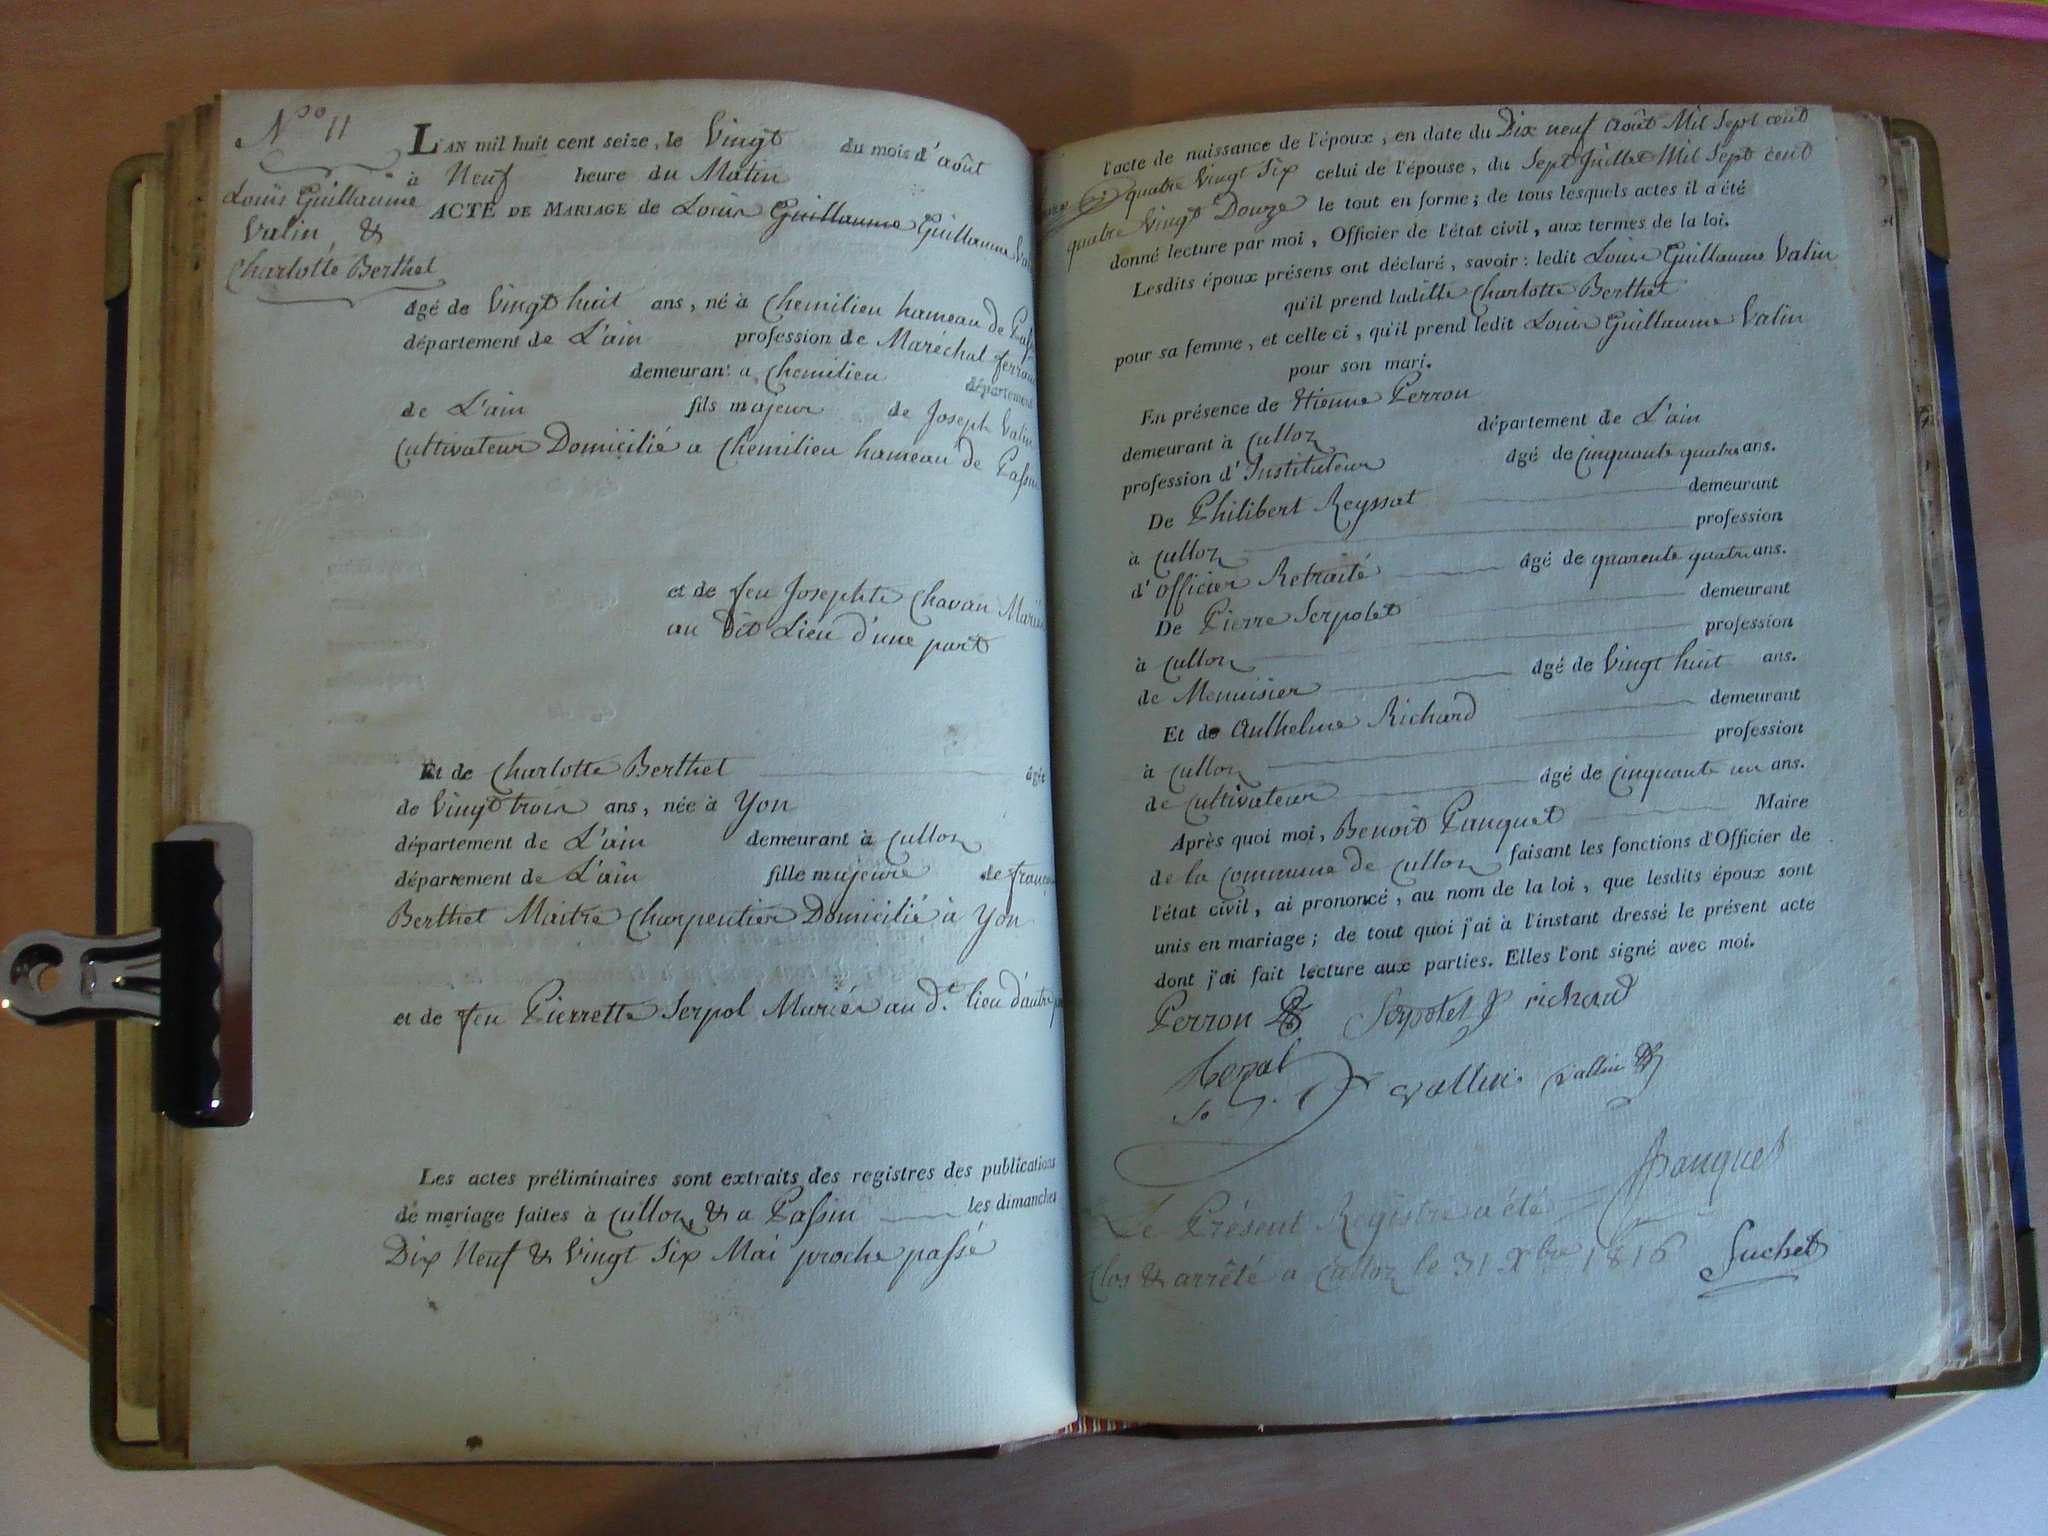 N.o 11
Louis Guillaume
Valin &
Charlotte Berthet
L'AN mil huit cent seize, le Vingt du mois d'août
à Neuf heure du Matin
ACTE DE MARIAGE de Louis Guillaume Guillaume
âgé de Vingt huit ans, né à Chemilieu hameau de
département de L'ain profession de Maréchal ferrant
demeurant a Chemilieu département
de L'ain fils majeur de Joseph Valin
Cultivateur Domicilié a Chemilieu hameau de Passin
et de feu Josephte Chavan
au Dit Lieu d'une part
Et de Charlotte Berthet âgée
de Vingt trois ans, née à Yon
département de L'ain demeurant à Culloz
département de L'ain fille majeure de
Berthet Maitre Charpentier Domicilié à Yon
et de feu Pierrette Serpol Mariés au d.t lieu d'autre
Les actes préliminaires sont extraits des registres des publications
de mariage faites à Culloz & a Passin les dimanches
Dix Neuf & Vingt Six Mai proche passé
l'acte de naissance de l'époux, en date du Dix neuf Août Mil Sept cent
quatre Vingt Six celui de l'épouse, du Sept Juillet Mil Sept cent
quatre Vingt Douze le tout en forme; de tous lesquels actes il a été
donné lecture par moi, Officier de l'état civil, aux termes de la loi.
Lesdits époux présens ont déclaré, savoir: ledit Louis Guillaume Valin
qu'il prend laditte Charlotte Berthet
pour sa femme, et celle ci, qu'il prend ledit Louis Guillaume Valin
pour son mari.
En présence de Etienne Perron
demeurant à Culloz département de L'ain
profession d'Instituteur âgé de cinquante quatre ans.
De Philibert Reyssat demeurant
à Culloz profession
d'officier Retraité âgé de quarente quatre ans.
De Pierre Serpolet demeurant
à Culloz profession
de Menuisier âgé de Vingt huit ans.
Et de Anthelme Richard demeurant
à Culloz profession
de Cultivateur âgé de Cinquante un ans.
Après quoi moi, Benoit Pauquet Maire
de la commune de Culloz faisant les fonctions d'Officier de
l'état civil, ai prononcé, au nom de la loi, que lesdits époux sont
unis en mariage; de tout quoi j'ai à l'instant dressé le présent acte
dont j'ai fait lecture aux parties. Elles l'ont signé avec moi.
Perron Serpolet P richard
vallin vallin
Pauquet
Le Présent Registre a été
Clos & arrêté a Culloz le 31 Xbre 1816 Suchet